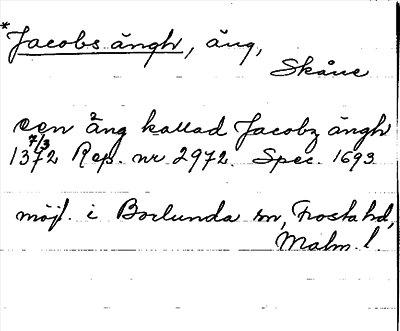 *Jacobs ängh, äng,
Skåne
een äng kallad Jacobz ängh
7/3
1372 Rep. nr 2972. Spec. 1693
möjl. i Borlunda sn, Frosta hd,
Malm. l.